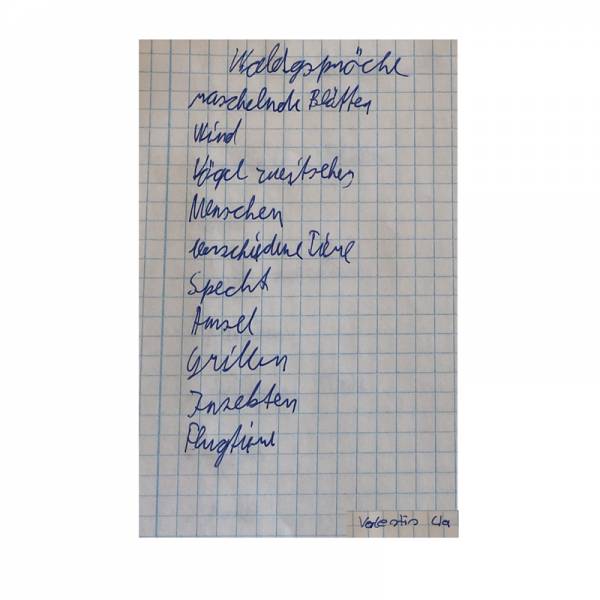 Waldgespräche
raschelnde Blätter
Wind
Vögel zwitschern
Menschen
verschiedene Tiere
Specht
Amsel
Grillen
Insekten
Flugtiere
4a